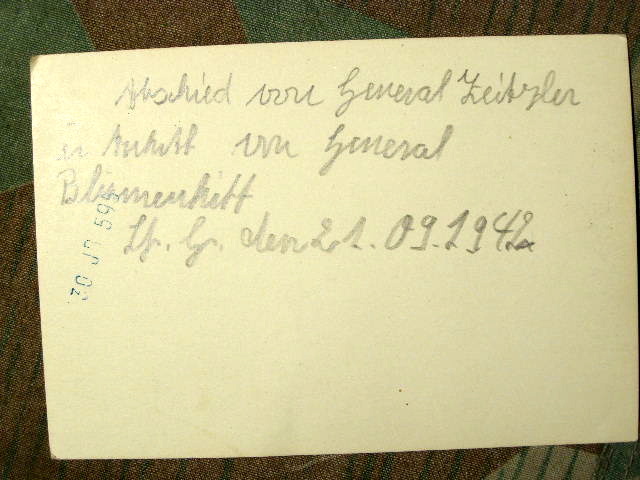 Abschied von General Zeitzler
u Antritt von General
Blumentritt
St. G. den 21.09.1942